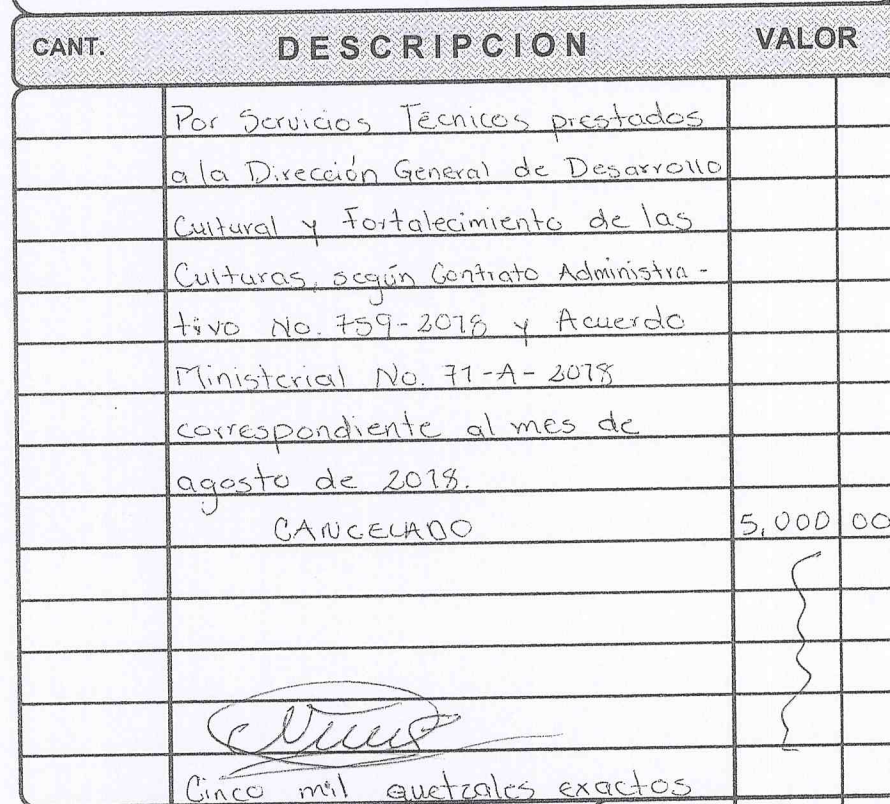 CANT. DESCRIPCION VALOR
Por Servicios Técnicos prestados
a la Dirección General de Desarrollo
Cultural y Fortalecimiento de las
Culturas, según Contrato Administra-
tivo No. 759-2018 y Acuerdo
Ministerial No. 71-A-2018
correspondiente al mes de
agosto de 2018.
CANCELADO 5,000 00
Cinco mil quetzales exactos